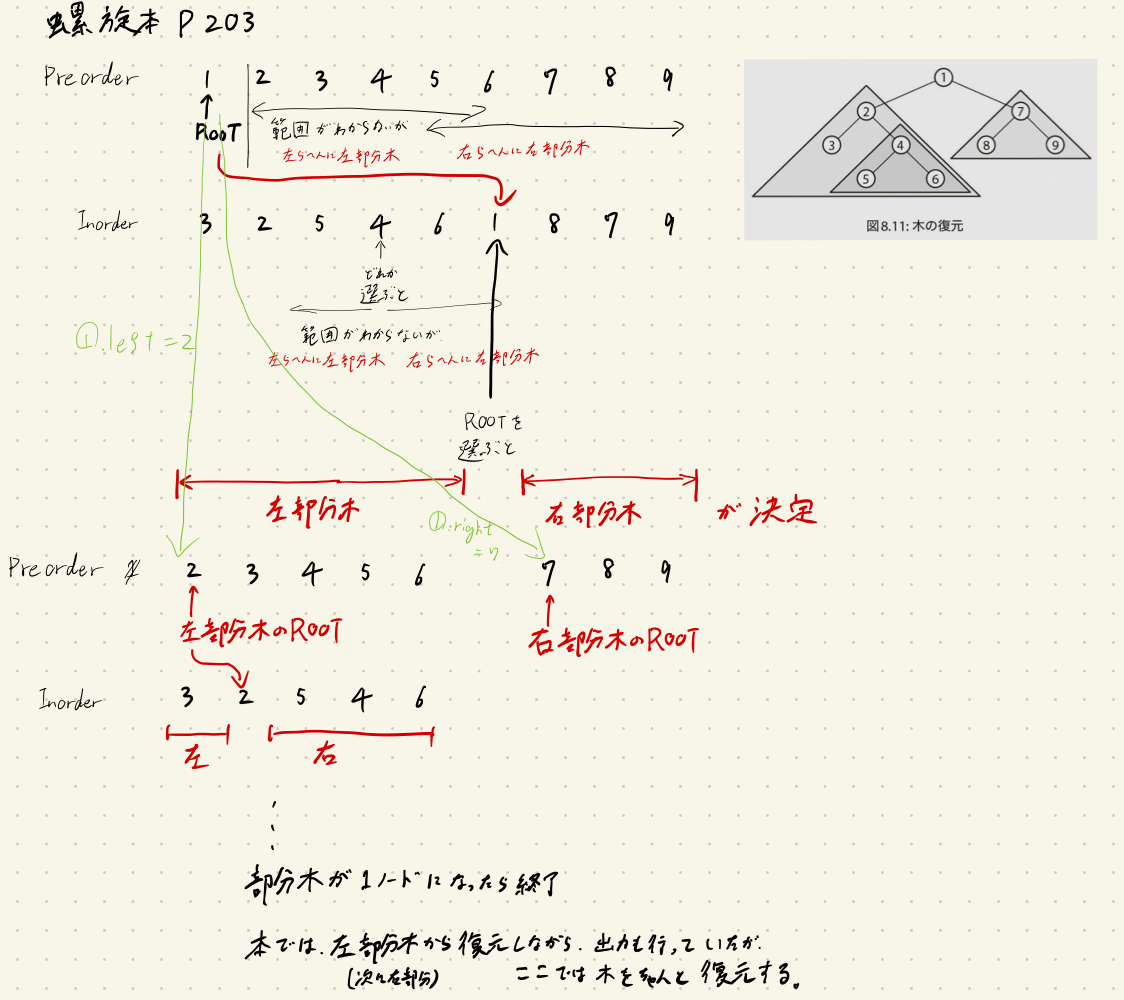 螺旋本 P 203
Preorder 1 2 3 4 5 6 7 8 9
ROOT
範囲がわからないが
左らへんに左部分木 右らへんに右部分木
Inorder 3 2 5 4 6 1 8 7 9
どれか
選ぶと
範囲がわからないが
左らへんに左部分木 右らへんに右部分木
①.left = 2
ROOTを
選ぶと
左部分木 右部分木 が決定
①.right
= 7
Preorder 2 3 4 5 6 7 8 9
左部分木のROOT 右部分木のROOT
Inorder 3 2 5 4 6
左 右
部分木が1ノードになったら終了
本では、左部分木から復元しながら、出力も行っていたが、
(次に右部分) ここでは木をちゃんと復元する。
1
2 7
3 4 8 9
5 6
図8.11: 木の復元